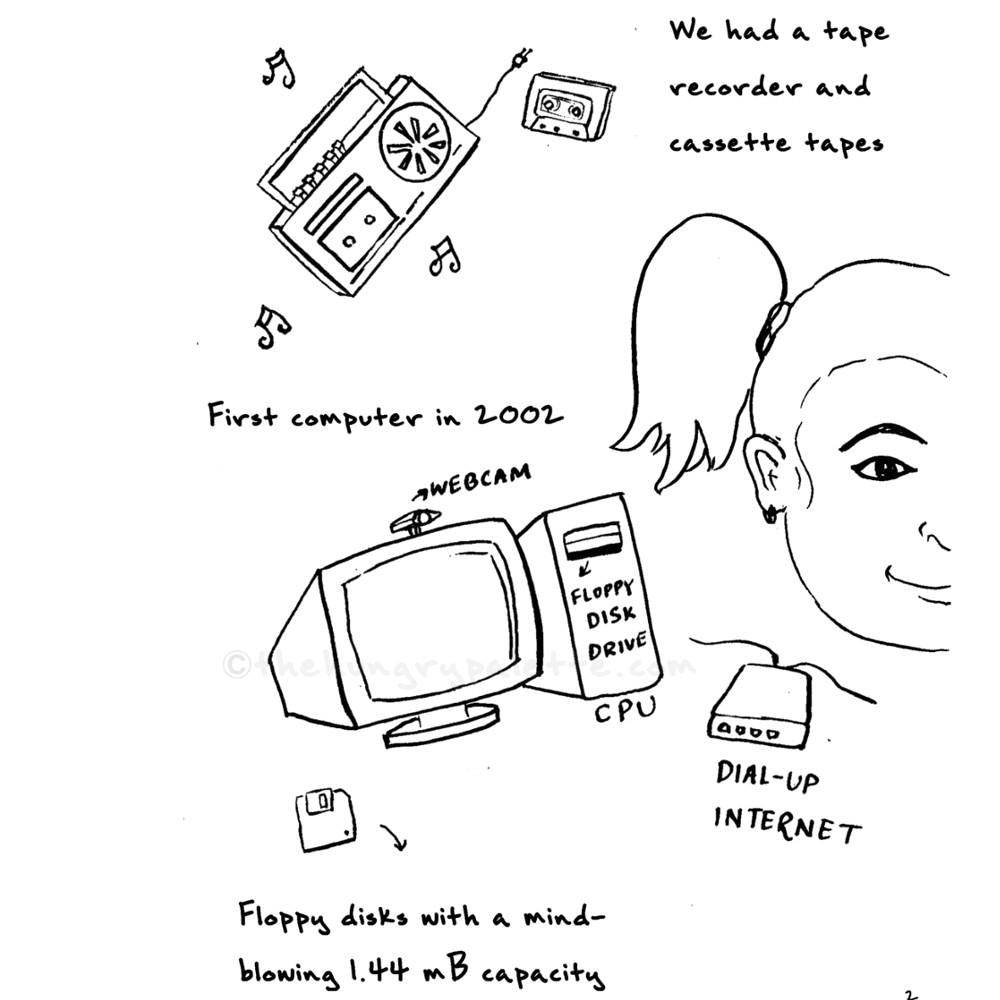 We had a tape
recorder and
cassette tapes
First computer in 2002
WEBCAM
FLOPPY
DISK
DRIVE
©thehungrypalette.com
CPU
DIAL-UP
INTERNET
Floppy disks with a mind-
blowing 1.44 mB capacity
2